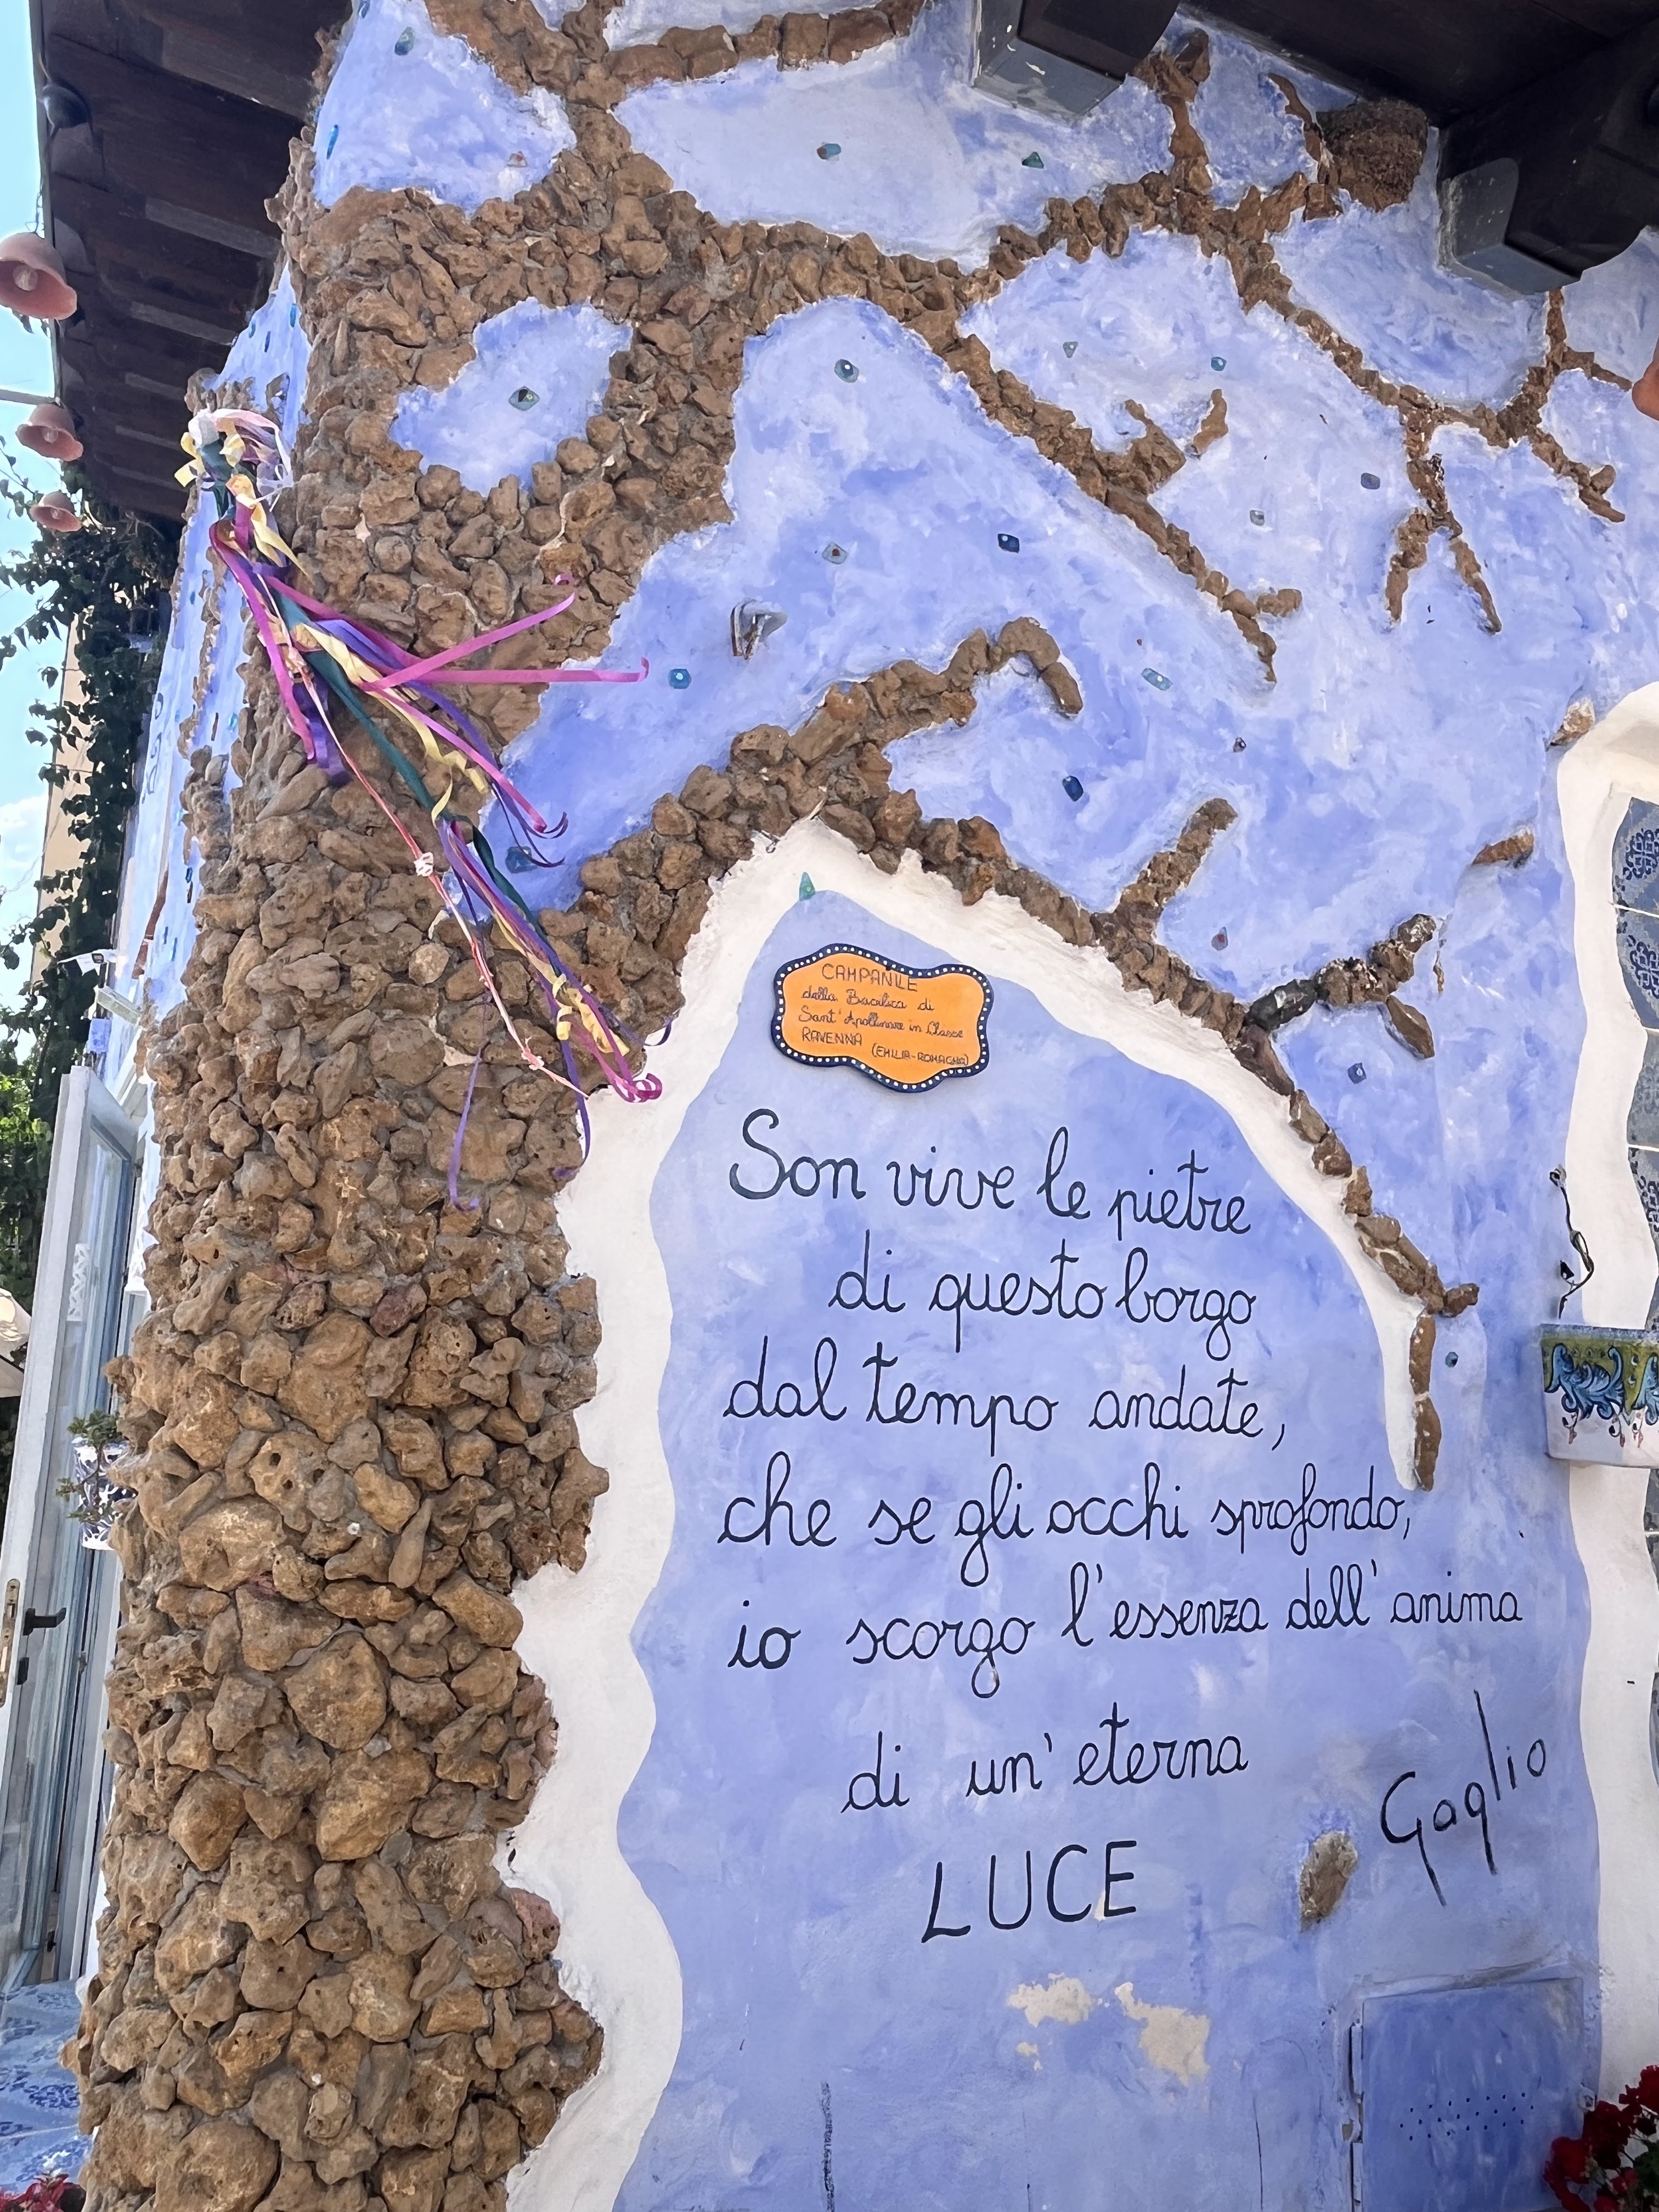 CAMPANILE
della Basilica di
Sant'Apollinare in Classe
RAVENNA (EMILIA-ROMAGNA)
Son vive le pietre
di questo borgo
dal tempo andate,
che se gli occhi sprofondo,
io scorgo l'essenza dell'anima
di un'eterna
LUCE
Gaglio